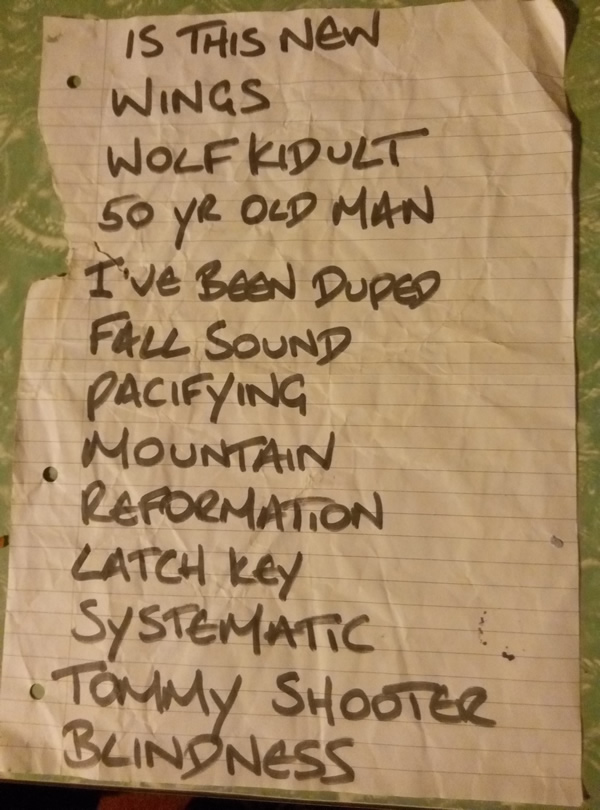 IS THIS NEW
WINGS
WOLF KIDULT
50 YR OLD MAN
I'VE BEEN DUPED
FALL SOUND
PACIFYING
MOUNTAIN
REFORMATION
LATCH KEY
SYSTEMATIC
TOMMY SHOOTER
BLINDNESS